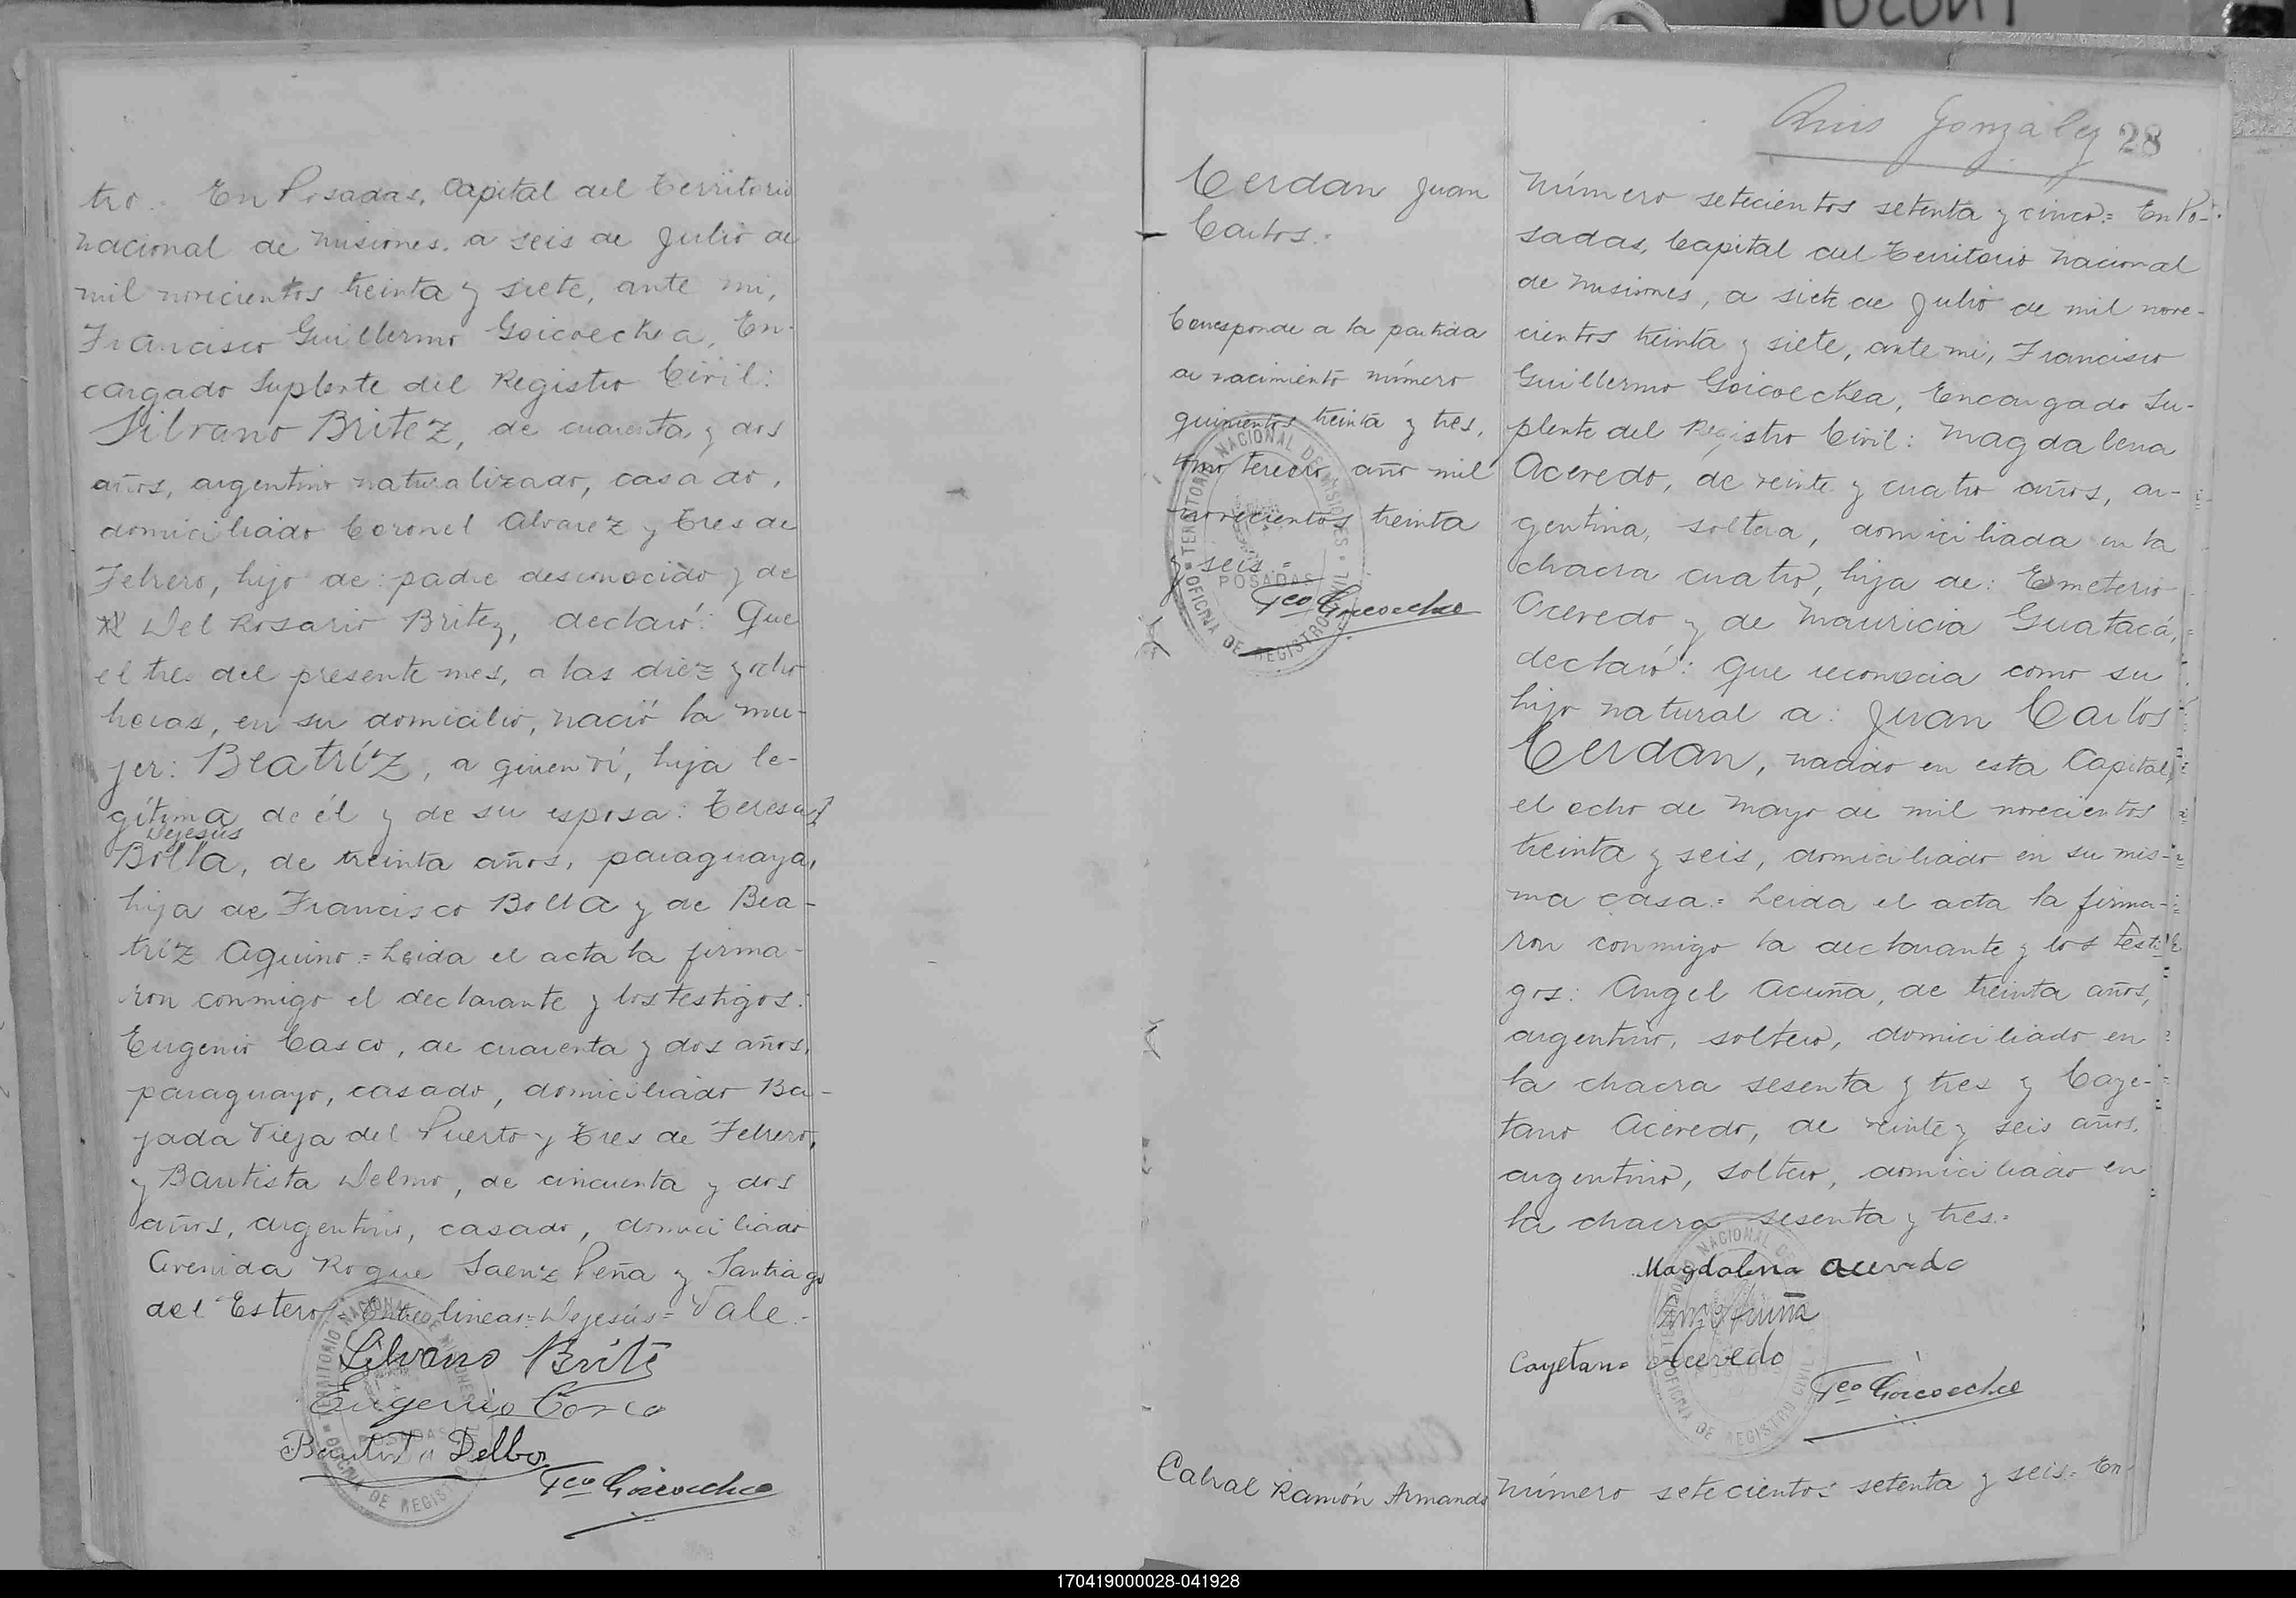 tro.- En Posadas, Capital del Territorio
Nacional de Misiones, a seis de Julio de
mil novecientos treinta y siete, ante mi,
Francisco Guillermo Goicoechea, En-
cargado Suplente del Registro Civil:
Silvano Britez, de cuarenta y dos
años, argentino naturalizado, casado,
domiciliado Coronel Alvarez y Tres de
Febrero, hijo de: padre desconocido y de
Del Rosario Britez, declaró: Que
el tres del presente mes, a las diez y ocho
horas, en su domicilio, nació la mu-
jer: Beatríz, a quien ví, hija le-
gítima de él y de su esposa: Teresa
Dejesús
Bolla, de treinta años, paraguaya,
hija de Francisco Bolla y de Bea-
tríz Aquino.= Leida el acta la firma-
ron conmigo el declarante y los testigos:
Eugenio Casco, de cuarenta y dos años,
paraguayo, casado, domiciliado Ba-
jada Vieja del Puerto y Tres de Febrero,
y Bautista Delmo, de cincuenta y dos
años, argentino, casado, domiciliado
Avenida Roque Saenz Peña y Santiago
del Estero. Entre lineas= Dejesús= Vale.-
Silvano Britez
Eugenio Casco
Bautista Delbo
Fco Goicoechea
Luis González 28
Cerdan Juan
Carlos.-
Corresponde a la partida
de nacimiento número
quinientos treinta y tres,
tomo tercero, año mil
novecientos treinta
y seis.=
Fco Goicoechea
TERRITORIO NACIONAL DE MISIONES
OFICINA DE REGISTRO CIVIL
POSADAS
Número setecientos setenta y cinco= En Po-
sadas, Capital del Territorio Nacional
de Misiones, a siete de Julio de mil nove-
cientos treinta y siete, ante mi, Francisco
Guillermo Goicoechea, Encargado Su-
plente del Registro Civil: Magdalena
Acevedo, de veinte y cuatro años, ar-
gentina, soltera, domiciliada en la
chacra cuatro, hija de: Emeterio
Acevedo y de Mauricia Guatacá,
declaró: Que reconocia como su
hijo natural a: Juan Carlos
Cerdan, nacido en esta Capital,
el ocho de Mayo de mil novecientos
treinta y seis, domiciliado en su mis-
ma casa.= Leida el acta la firma-
ron conmigo la declarante y los testi-
gos: Angel Acuña, de treinta años,
argentino, soltero, domiciliado en
la chacra sesenta y tres y Caye-
tano Acevedo, de veinte y seis años,
argentino, soltero, domiciliado en
la chacra sesenta y tres.=
Magdalena Acevedo
Cayetano Acevedo
Fco Goicoechea
Cabral Ramón Armando
Número setecientos setenta y seis= En
170419000028-041928